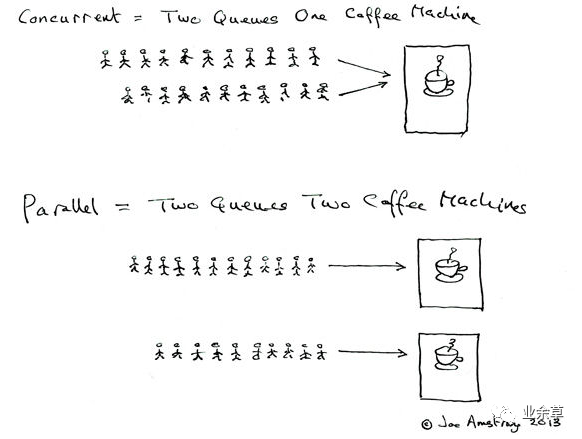 Concurrent = Two Queues One Coffee Machine
Parallel = Two Queues Two Coffee Machines
业余草
© Joe Armstrong 2013